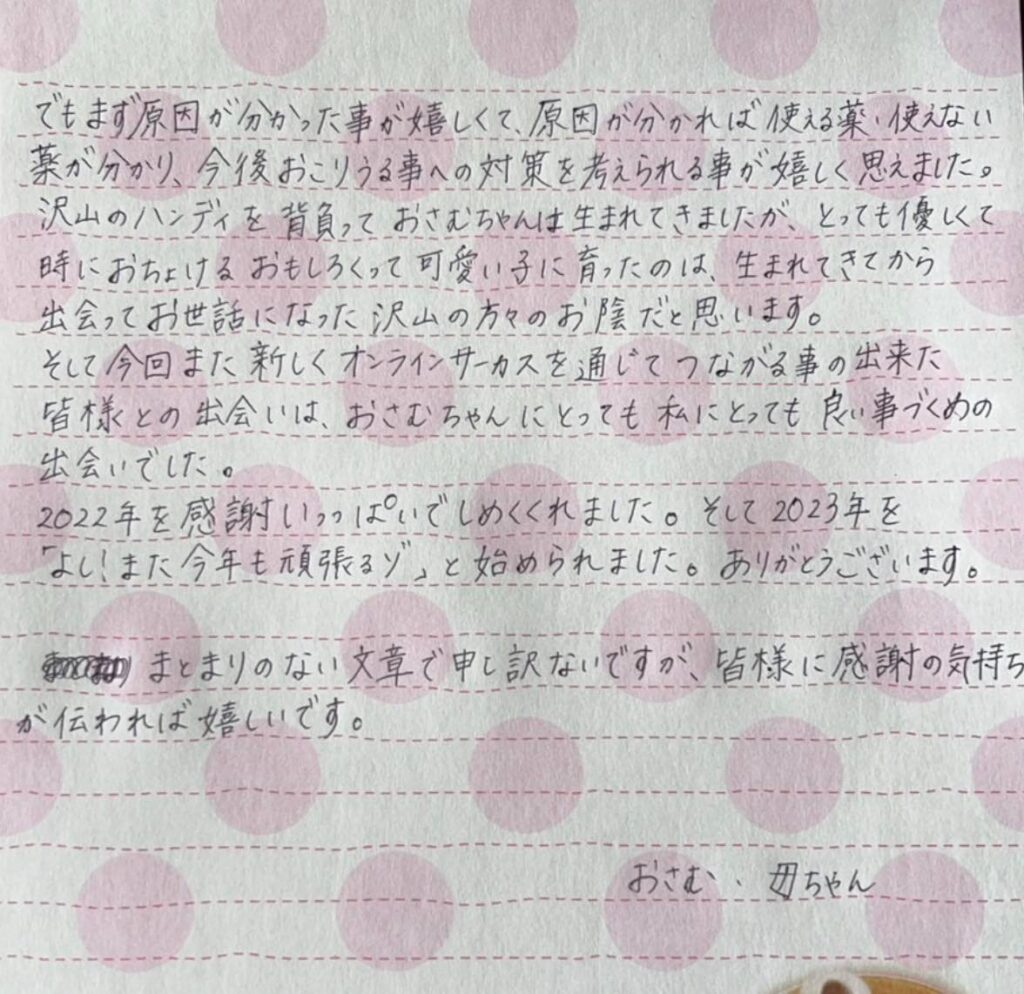 でもまず原因が分かった事が嬉しくて、原因が分かれば使える薬・使えない
薬が分かり、今後おこりうる事への対策を考えられる事が嬉しく思えました。
沢山のハンディを背負っておさむちゃんは生まれてきましたが、とっても優しくて
時におちょけるおもしろくって可愛い子に育ったのは、生まれてきてから
出会ってお世話になった沢山の方々のお陰だと思います。
そして今回また新しくオンラインサーカスを通じてつながる事の出来た
皆様との出会いは、おさむちゃんにとっても私にとっても良い事づくめの
出会いでした。
2022年を感謝いっぱいでしめくくれました。そして2023年を
「よし!また今年も頑張るゾ」と始められました。ありがとうございます。
まとまりのない文章で申し訳ないですが、皆様に感謝の気持ち
が伝われば嬉しいです。
おさむ・母ちゃん